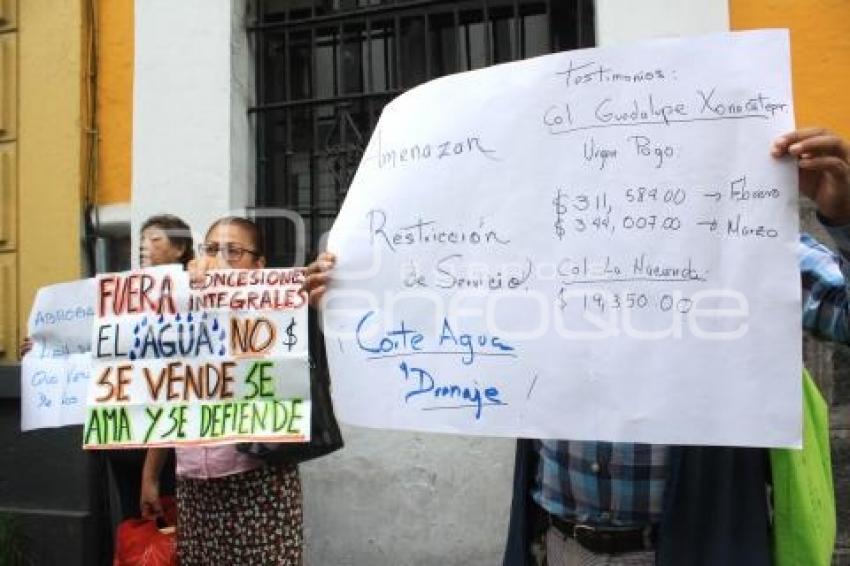 FUERA CONCESIONES
INTEGRALES
EL AGUA NO $
SE VENDE SE
AMA Y SE DEFIENDE
Amenazan
Restricción
de Servicio
Corte Agua
Drenaje
Testimonios:
Col Guadalupe Xonacatepec
Urgen Pago
$ 311, 584.00 → Febrero
$ 344, 007.00 → Marzo
Col La Hacienda
$ 19,350 00
enfoque